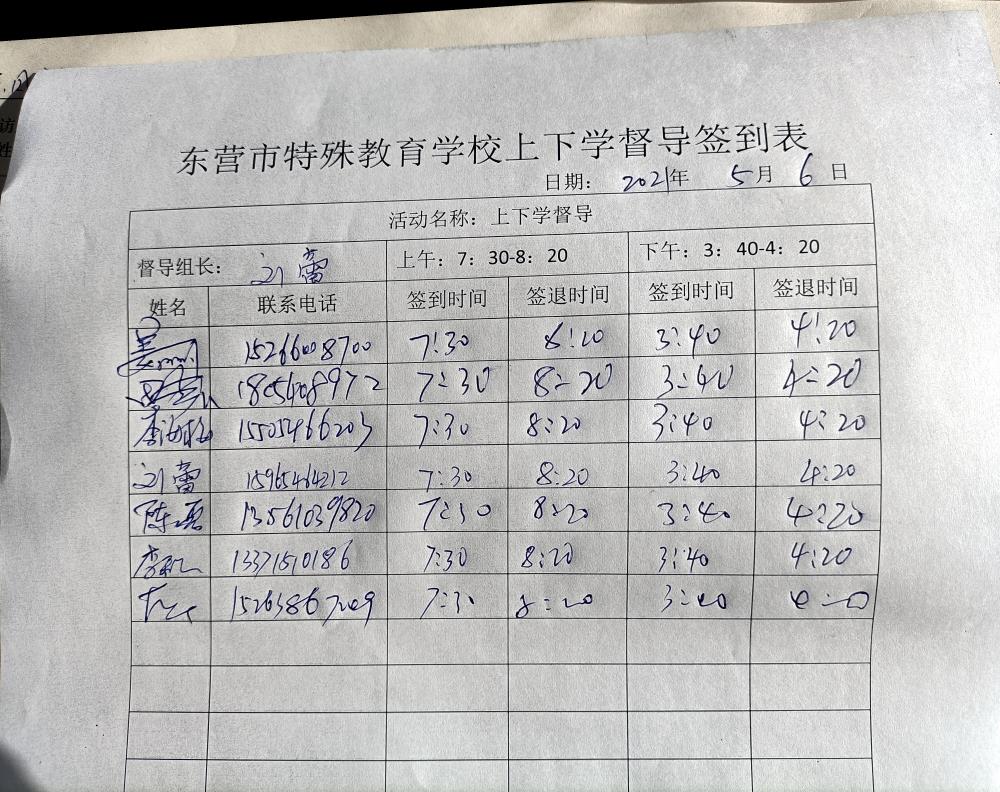 东营市特殊教育学校上下学督导签到表
日期： 2021年 5月 6日
活动名称：上下学督导
督导组长： 刘蕾 上午：7：30-8：20 下午：3：40-4：20
姓名 联系电话 签到时间 签退时间 签到时间 签退时间
15266008700 7:30 8:20 3:40 4:20
7:30 8:20 3:40 4:20
15505466203 7:30 8:20 3:40 4:20
刘蕾 15965464212 7:30 8:20 3:40 4:20
陈磊 13561039820 7:30 8:20 3:40 4:20
13371510186 7:30 8:20 3:40 4:20
15263867209 7:30 8:20 3:40